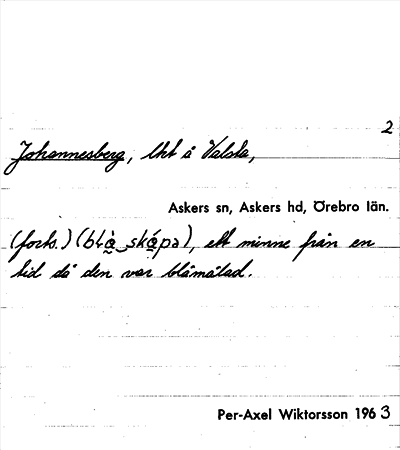 2
Johannesberg, lht å Valsta,
Askers sn, Askers hd, Örebro län.
(forts.) (blå skåpə), ett minne från en
tid då den var blåmålad.
Per-Axel Wiktorsson 1963